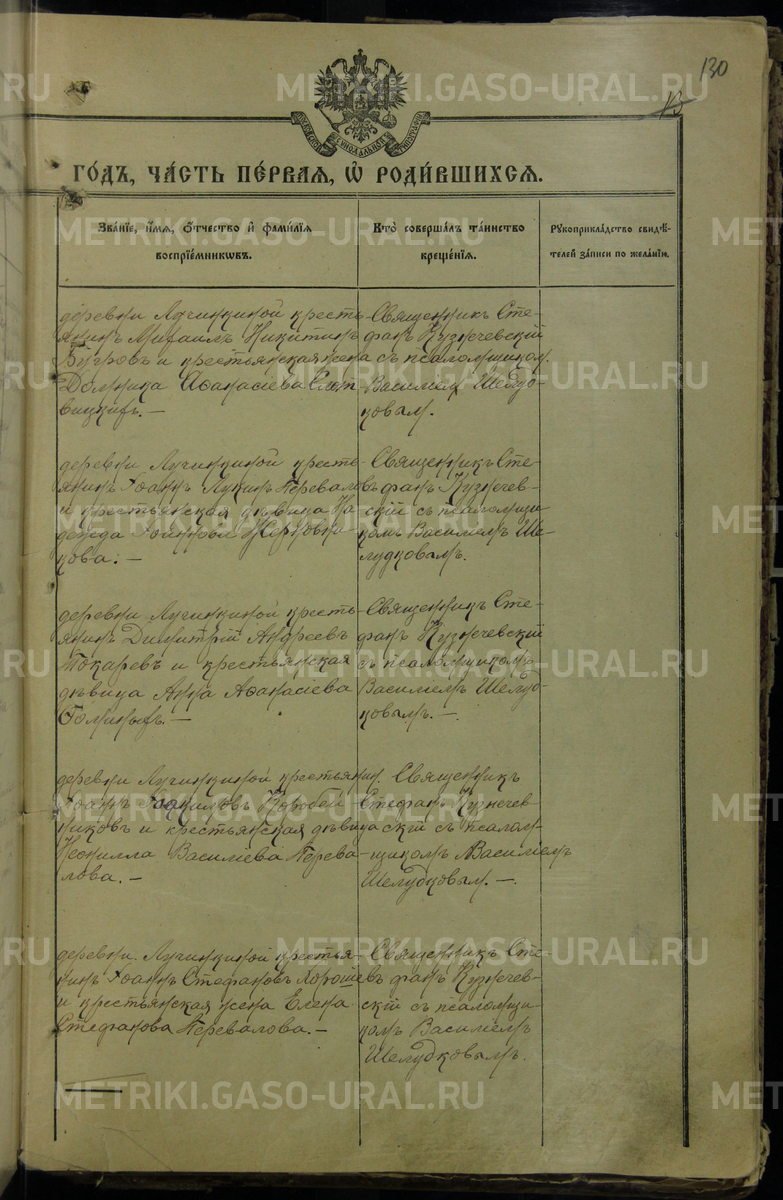 130
13
METRIKI.GASO-URAL.RU
ГОДЪ, ЧАСТЬ ПЕРВАЯ, Ѽ РОДИВШИХСЯ.
Званіе, имя, отчество и фамилія воспріемниковъ.
Кто совершалъ таинство крещенія.
Рукоприкладство свидѣтелей записи по желанію.
деревни Лучинкиной кресть-
янинъ Михаилъ Никитинъ
Бугровъ и крестьянская жена
Домника Аѳанасіева
Священникъ Сте-
фанъ Кузнечевскій
съ псаломщиком.
Василіем Шелуд-
ковым.
деревни Лучинкиной кресть-
янинъ Іоаннъ Лукинъ Переваловъ
и крестьянская дѣвица На-
дежда Іоаннова
кова. —
Священникъ Сте-
фанъ Кузнечев-
скій съ псаломщи-
комъ Василіемъ Ше-
лудковымъ.
деревни Лучинкиной кресть-
янинъ Димитрій Андреевъ
Токаревъ и крестьянская
дѣвица Анна Аѳанасіева
Ѳоминыхъ. —
Священникъ Сте-
фанъ Кузнечевскій
съ псаломщикомъ
Василіемъ Шелуд-
ковымъ. —
деревни Лучинкиной крестьянин.
Іоаннъ Коробей-
никовъ и крестьянская дѣвица
Неонилла Василіева Перева-
лова. —
Священникъ
Стефанъ Кузнечев-
скій съ псалом-
щикомъ Василіемъ
Шелудковым. —
деревни Лучинкиной крестья-
нинъ Іоаннъ Стефановъ Хорошевъ
и крестьянская жена Елена
Стефанова Перевалова. —
Священникъ Сте-
фанъ Кузнечев-
скій съ псаломщи-
комъ Василіемъ
Шелудковымъ.